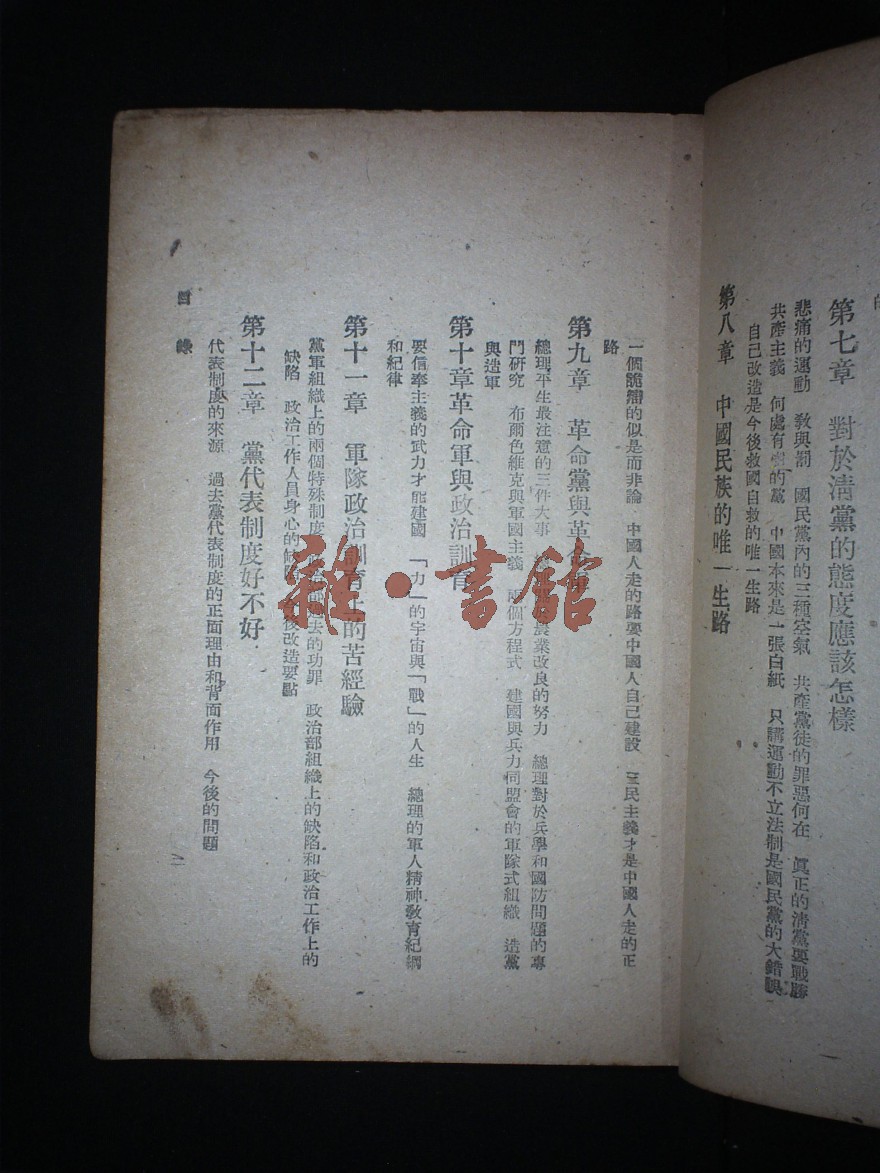 第七章　對於淸黨的態度應該怎樣
悲痛的運動　敎與罰　國民黨內的三種空氣　共產黨徒的罪惡何在　眞正的淸黨要戰勝
共產主義　何處有　的黨　中國本來是一張白紙　只講運動不立法制是國民黨的大錯誤
自己改造是今後救國自救的唯一生路
第八章　中國民族的唯一生路
一個詭辯的似是而非論　中國人走的路要中國人自己建設　三民主義才是中國人走的正
路
第九章　革命黨與革命
總理平生最注意的三件大事　農業改良的努力　總理對於兵學和國防問題的專
門研究　布爾色維克與軍國主義　兩個方程式　建國與兵力同盟會的軍隊式組織　造黨
與造軍
第十章革命軍與政治訓育
要信奉主義的武力才能建國　「力」的宇宙與「戰」的人生　總理的軍人精神敎育紀綱
和紀律
第十一章　軍隊政治訓育上的苦經驗
黨軍組織上的兩個特殊制度　過去的功罪　政治部組織上的缺陷和政治工作上的
缺陷　政治工作人員身心的缺陷　今後改造要點
第十二章　黨代表制度好不好
代表制度的來源　過去黨代表制度的正面理由和背面作用　今後的問題
目錄
二
雜·書館